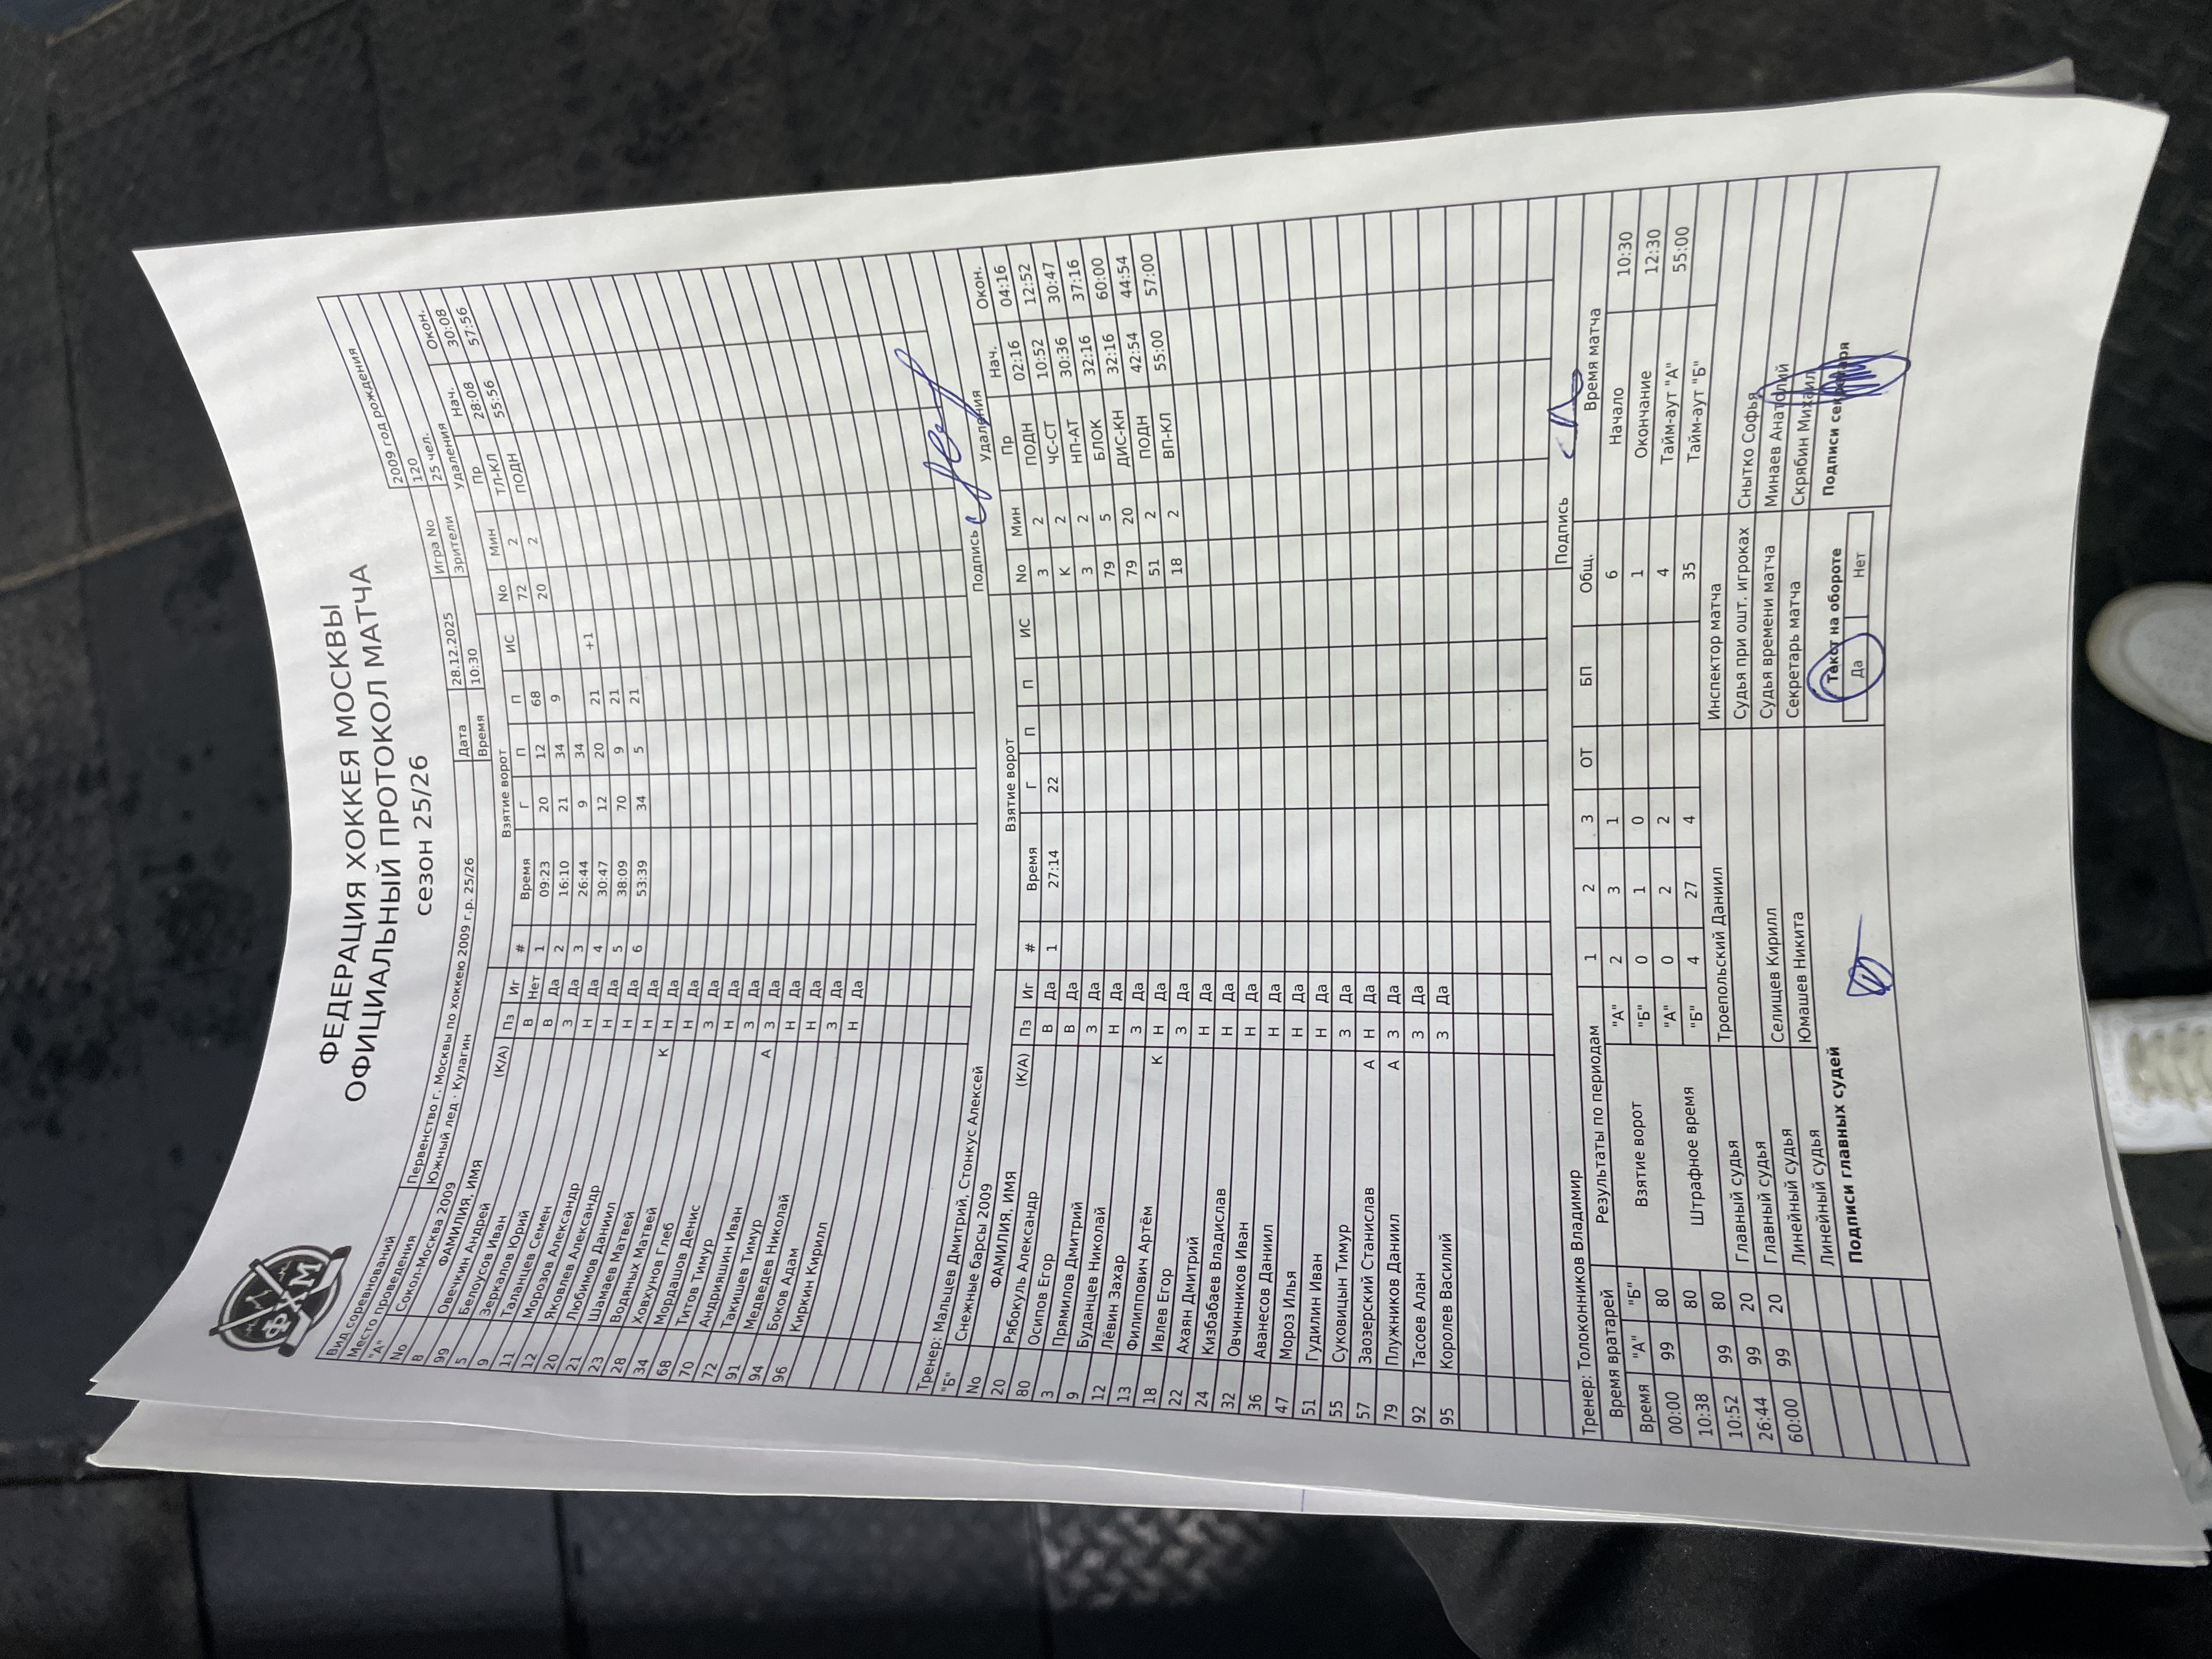 ФЕДЕРАЦИЯ ХОККЕЯ МОСКВЫ
ОФИЦИАЛЬНЫЙ ПРОТОКОЛ МАТЧА
сезон 25/26
ФХМ
Вид соревнований Первенство г. Москвы по хоккею 2009 г.р. 25/26 Дата 28.12.2025 Игра No 120 2009 год рождения
Место проведения Южный лед · Кулагин Время 10:30 Зрители 25 чел.
"А" Сокол-Москва 2009 Взятие ворот Удаления
No ФАМИЛИЯ, ИМЯ (К/А) Пз Иг # Время Г П П ИС No Мин Пр Нач. Окон.
8 Овечкин Андрей В Нет 1 09:23 20 12 68 72 2 ТЛ-КЛ 28:08 30:08
99 Белоусов Иван В Да 2 16:10 21 34 9 20 2 ПОДН 55:56 57:56
5 Зеркалов Юрий З Да 3 26:44 9 34
9 Таланцев Семен Н Да 4 30:47 12 20 21 +1
11 Морозов Александр Н Да 5 38:09 70 9 21
12 Яковлев Александр Н Да 6 53:39 34 5 21
20 Любимов Даниил Н Да
21 Шамаев Матвей К Н Да
23 Водяных Матвей Н Да
28 Ховхунов Глеб З Да
34 Мордашов Денис Н Да
68 Титов Тимур З Да
70 Андрияшин Иван А З Да
72 Такишев Тимур Н Да
91 Медведев Николай Н Да
94 Боков Адам З Да
96 Киркин Кирилл Н Да
Тренер: Мальцев Дмитрий, Стонкус Алексей Подпись
"Б" Снежные барсы 2009 Взятие ворот Удаления
No ФАМИЛИЯ, ИМЯ (К/А) Пз Иг # Время Г П П ИС No Мин Пр Нач. Окон.
20 Рябокуль Александр В Да 1 27:14 22 3 2 ПОДН 02:16 04:16
80 Осипов Егор В Да К 2 ЧС-СТ 10:52 12:52
3 Прямилов Дмитрий З Да 3 2 НП-АТ 30:36 30:47
9 Буданцев Николай Н Да 79 5 БЛОК 32:16 37:16
12 Лёвин Захар З Да 79 20 ДИС-КН 32:16 60:00
13 Филиппович Артём К Н Да 51 2 ПОДН 42:54 44:54
18 Ивлев Егор З Да 18 2 ВП-КЛ 55:00 57:00
22 Ахаян Дмитрий Н Да
24 Кизбабаев Владислав Н Да
32 Овчинников Иван Н Да
36 Аванесов Даниил Н Да
47 Мороз Илья Н Да
51 Гудилин Иван Н Да
55 Суковицын Тимур З Да
57 Заозерский Станислав А Н Да
79 Плужников Даниил А З Да
92 Тасоев Алан З Да
95 Королев Василий З Да
Тренер: Толоконников Владимир Подпись
Время вратарей Результаты по периодам 1 2 3 ОТ БП Общ. Время матча
Время "А" "Б" Взятие ворот "А" 2 3 1 6 Начало 10:30
00:00 99 80 "Б" 0 1 0 1 Окончание 12:30
10:38 80 Штрафное время "А" 0 2 2 4 Тайм-аут "А" 55:00
10:52 99 80 "Б" 4 27 4 35 Тайм-аут "Б"
26:44 99 20 Главный судья Троепольский Даниил Инспектор матча
60:00 99 20 Главный судья Судья при ошт. игроках Снытко Софья
Линейный судья Селищев Кирилл Судья времени матча Минаев Анатолий
Линейный судья Юмашев Никита Секретарь матча Скрябин Михаил
Подписи главных судей Текст на обороте Подписи секретаря
Да Нет